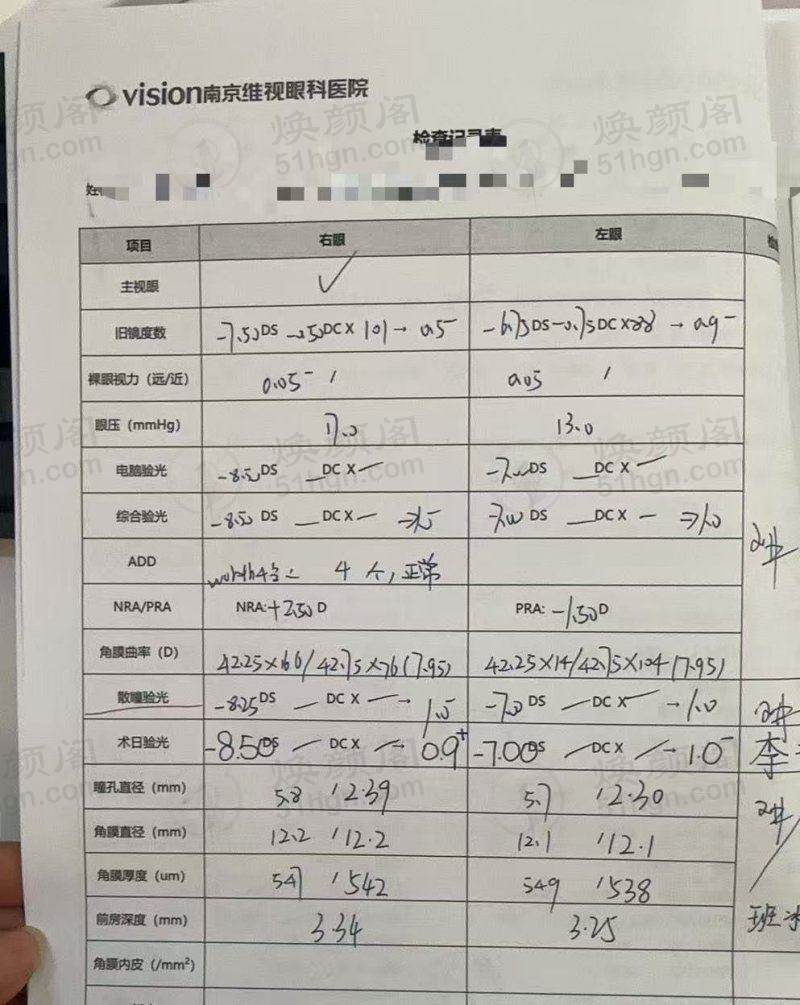 vision南京维视眼科医院
检查记录表
姓
项目 右眼 左眼
主视眼 ✓
旧镜度数 -7.50DS DC X 101 → 0.5- -6.75DS-0.75DC X88 → 0.9-
裸眼视力（远/近） 0.05- / 0.05 /
眼压（mmHg） 17.0 13.0
电脑验光 -8.50DS —DC X — -7.00DS —DC X —
综合验光 -8.50 DS —DC X — → -7.00 DS —DC X — → 1.0
ADD 4个，正常
NRA/PRA NRA:+2.50D PRA: -1.50D
角膜曲率（D） 42.25×166/42.75×76(7.95) 42.25×14/42.75×104(7.95)
散瞳验光 -8.25DS — DC X — → 1.0 -7.0DS — DC X — → 1.0
术日验光 -8.50DS — DC X — → 0.9+ -7.00DS — DC X — → 1.0- 李
瞳孔直径（mm） 5.8 /2.39 5.7 /2.30
角膜直径（mm） 12.2 /12.2 12.1 /12.1
角膜厚度（um） 547 /542 549 /538
前房深度（mm） 3.34 3.25 班
角膜内皮（/mm²）
焕颜阁
51hgn.com